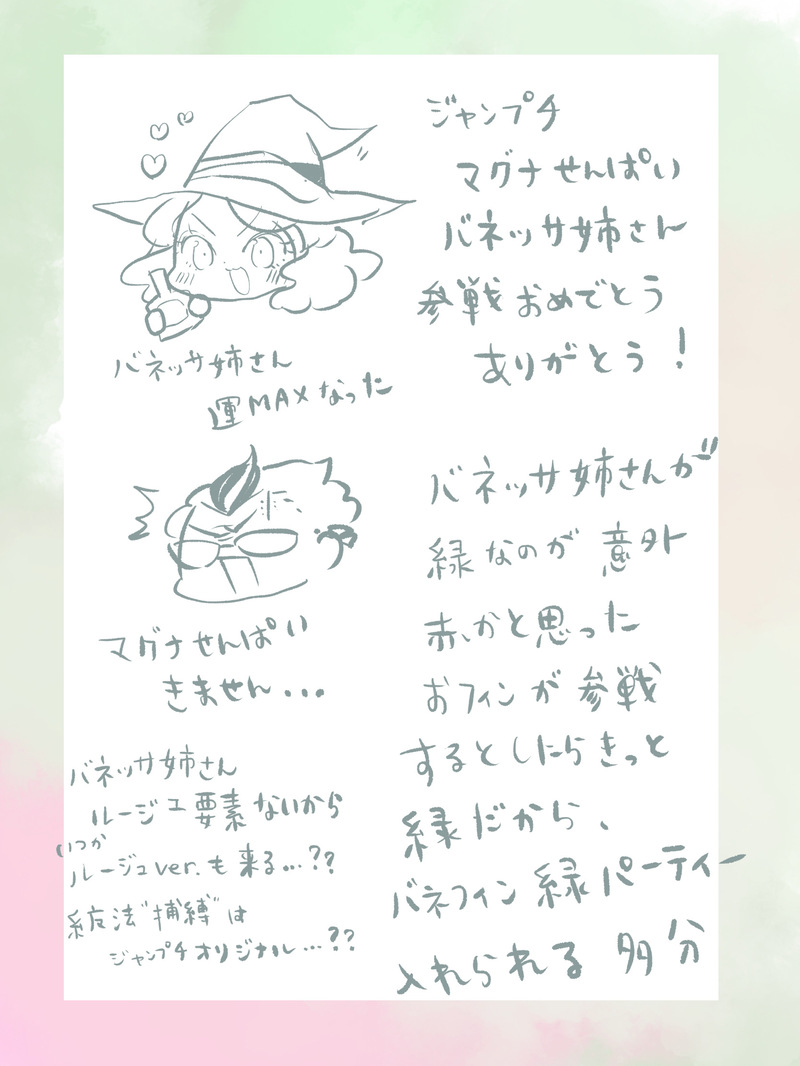 ジャンプチ
マグナせんぱい
バネッサ姉さん
参戦おめでとう
ありがとう！
バネッサ姉さん
運MAXなった
マグナせんぱい
きません...
バネッサ姉さんが
緑なのが意外
赤かと思った
おフィンが参戦
するとしたらきっと
緑だから、
バネフィン緑パーティー
入れられる多分
バネッサ姉さん
ルージュ要素ないから
いつか
ルージュver.も来る...??
糸友法"捕縛"は
ジャンプチオリジナル...??